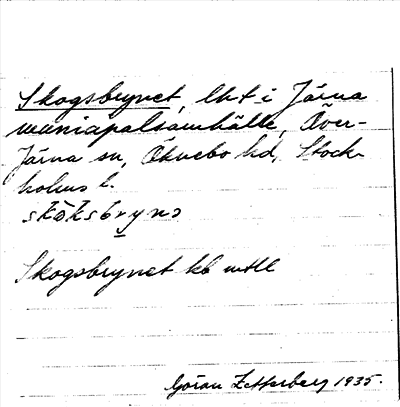 Skogsbrynet, lht i Järna
municipalsamhälle, Över-
Järna sn, Öknebo hd, Stock-
holms l.
skoksbryno
Skogsbrynet kb
Göran Zetterberg 1935.